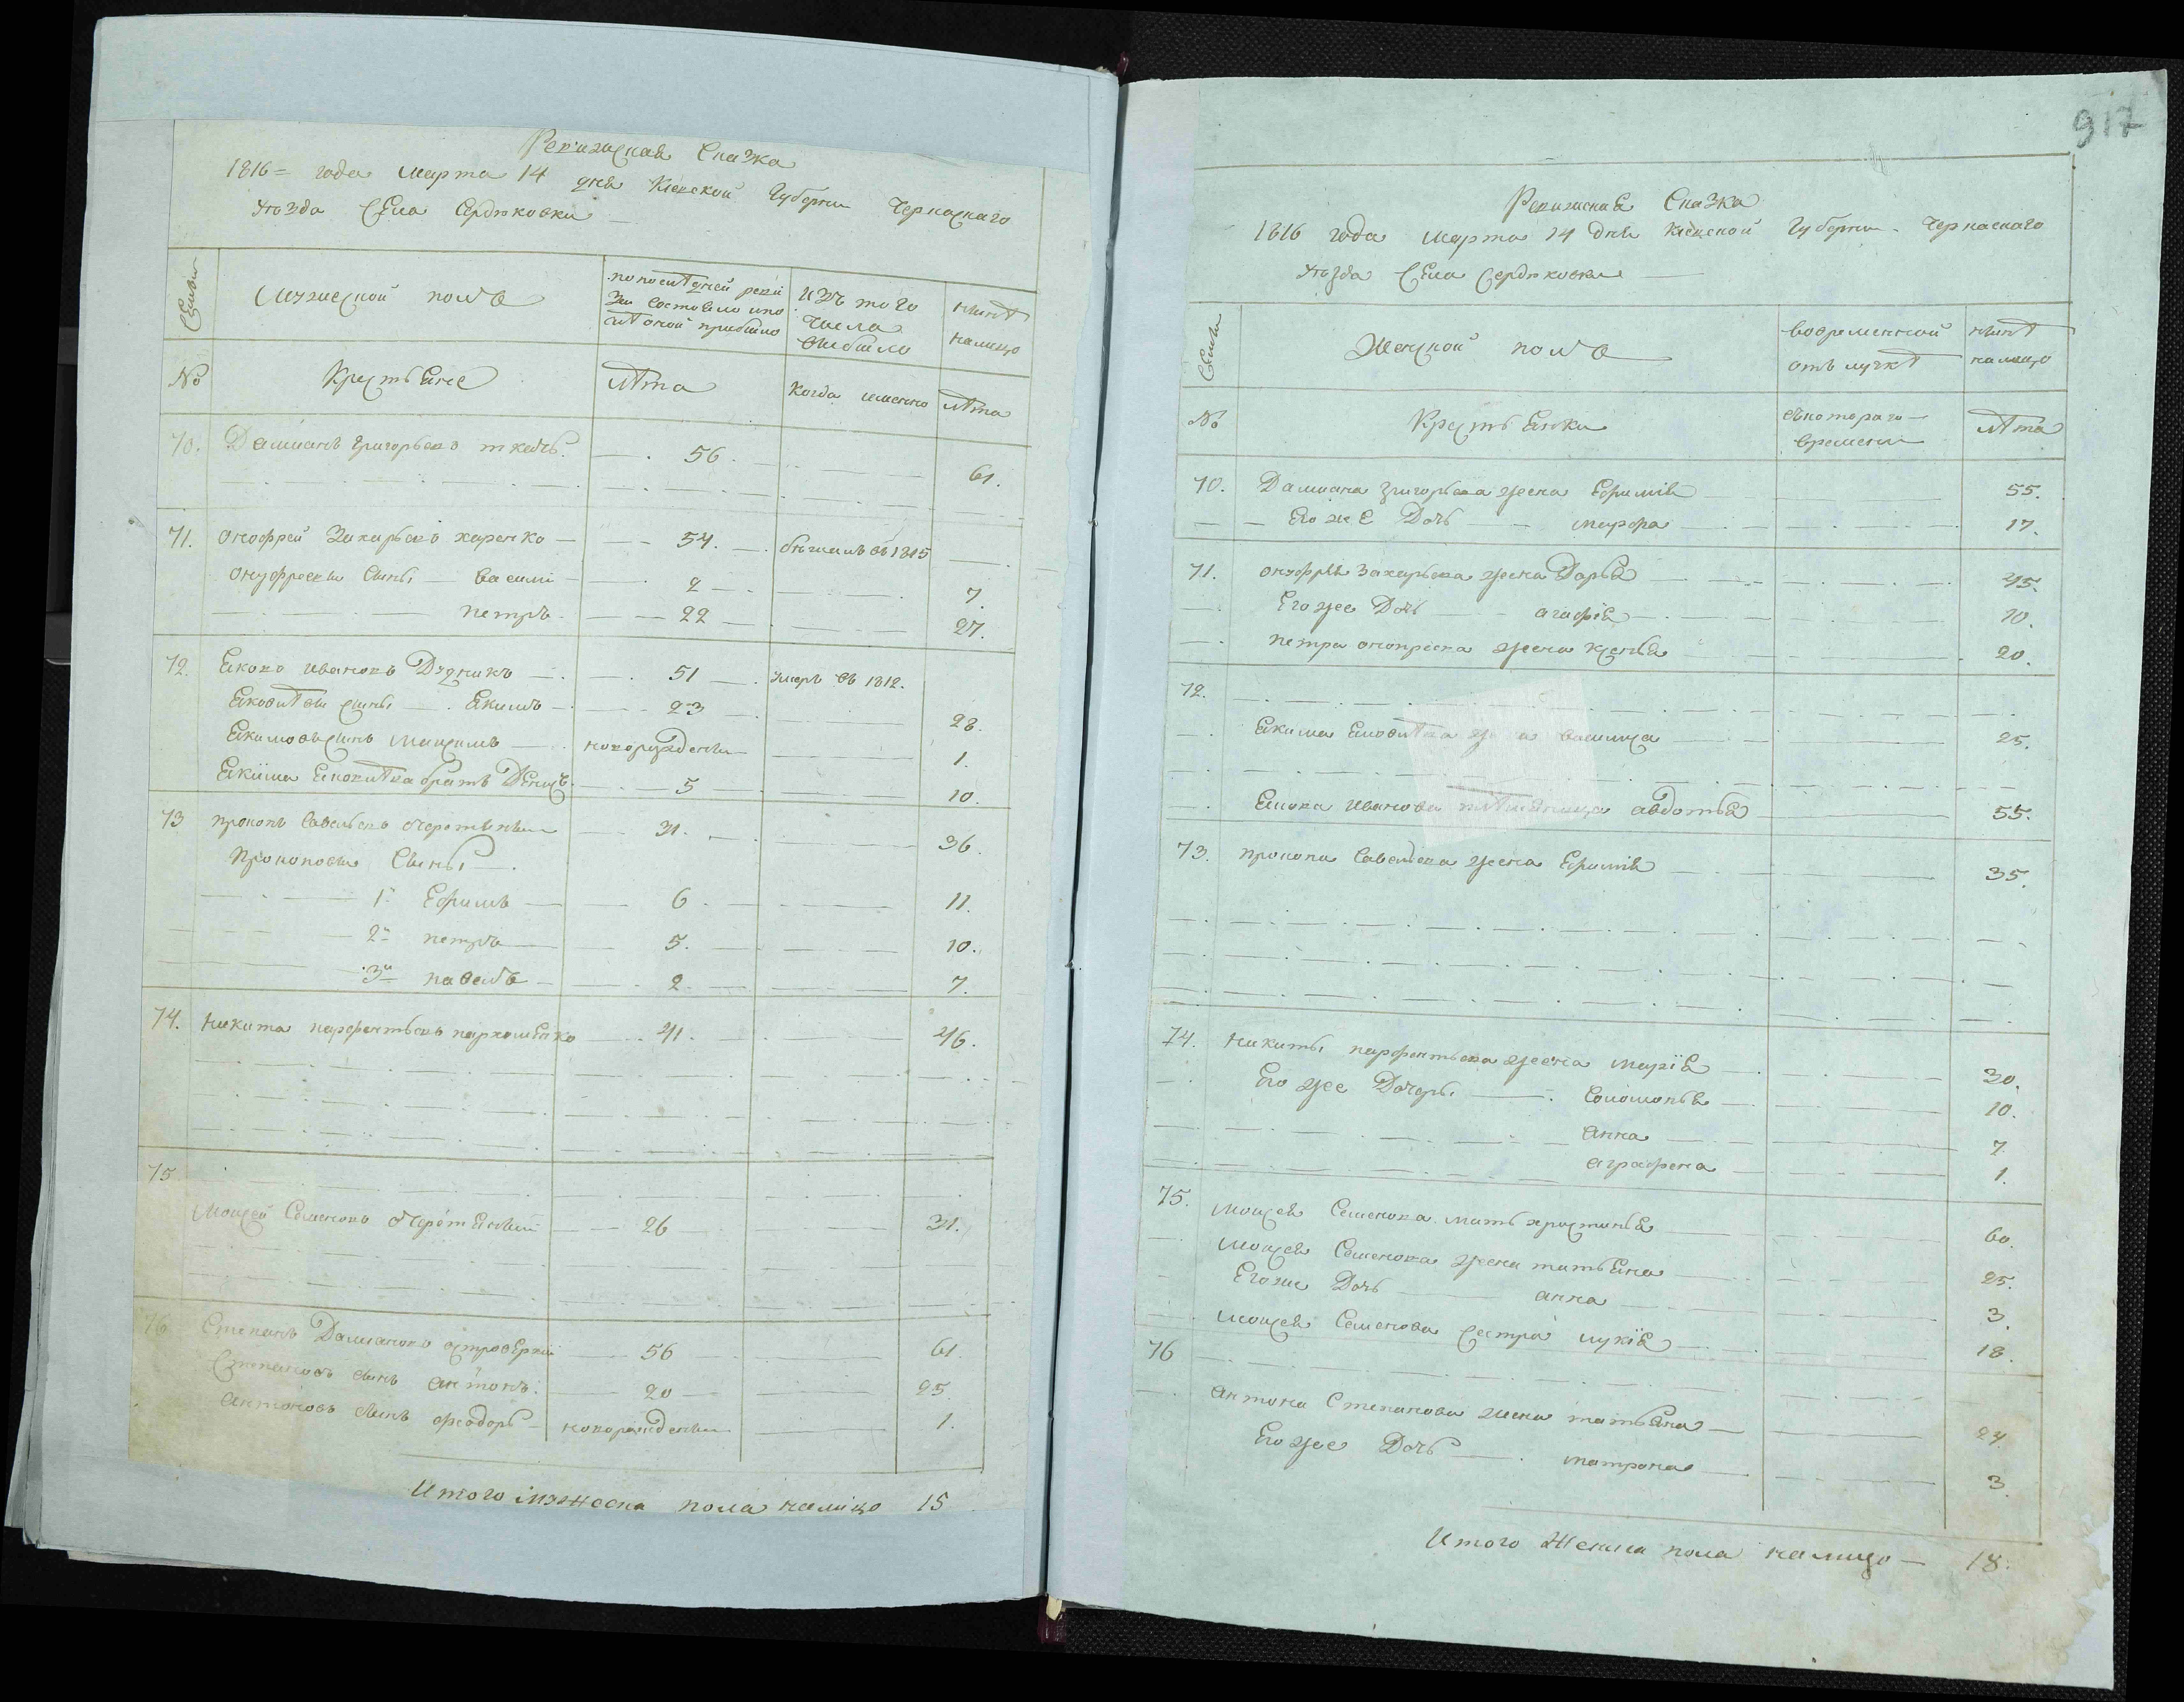 Ревизская Сказка
1816= года Марта 14 дня Киевской Губернии Черкаскаго
уѣзда Села Сердюковки
Семьи
Мужеской полъ
по последней реви
зіи состояло и по
слѣ оной прибыло
изъ того
числа
выбыло
нынѣ
налицо
№
Крестьяне
лѣта
когда именно
лѣта
70. Дамианъ Григорьевъ ткачь. 56. 61.
71. Онофрей Захарьевъ харенко 54. бѣжалъ въ 1815
Онуфреевы сыны Васили 2 7.
Петръ 22 27.
72. Яковъ Ивановъ Дудникъ 51 умеръ въ 1812.
Яковлевы сыны Якимъ 23 28.
Якимовъ сынъ Максимъ новорожденъ 1.
Якима Яковлева братъ Денисъ 5 10.
73 Прокопъ Савельевъ Очеретяный 31. 36.
Прокоповы Сыны
1й Ефимъ 6 11.
2й Петръ 5. 10.
3й Павелъ 2. 7.
74. Никита Парфентьевъ пархоменко 41. 46.
75
Моисей Семеновъ Очеретяный 26 31.
76 Степанъ Дамиановъ островерхий 56 61.
Степановъ сынъ Антонъ. 20 25.
Антоновъ сынъ Феодоръ новорожденъ 1.
Итого мужеска пола налицо 15
917
Ревизская Сказка
1816 года Марта 14 дня Киевской Губернии Черкаскаго
уѣзда Села Сердюковки
Семьи
Женской полъ
во временной
отълучкѣ
нынѣ
налицо
№
Крестьянки
съкотораго
времени
лѣта
70. Дамиана Григорьева жена Ефимія 55.
Его же Дочь Марфа 17.
71. Онуфрія Захарьева жена Дарья 45.
Его же Дочь Агафія 10.
Петра Онопреева жена Ксенья 20.
72.
Якима Яковлева жена Василиса 25.
Якова Иванова племянница Авдотья 55.
73. Прокопа Савельева жена Ефимія 35.
74. Никиты Парфентьева жена Марія 30.
Его же Дочеры Соломонья 10.
Анна 7.
Аграфена 1.
75. Моисея Семенова мать христинья 60.
Моисея Семенова жена татьяна 25.
Его же Дочь Анна 3.
Моисея Семенова сестра лукія 18.
76
Антона Степанова жена татьяна 24.
Его же Дочь Матрона 3.
Итого Женска пола налицо 18.